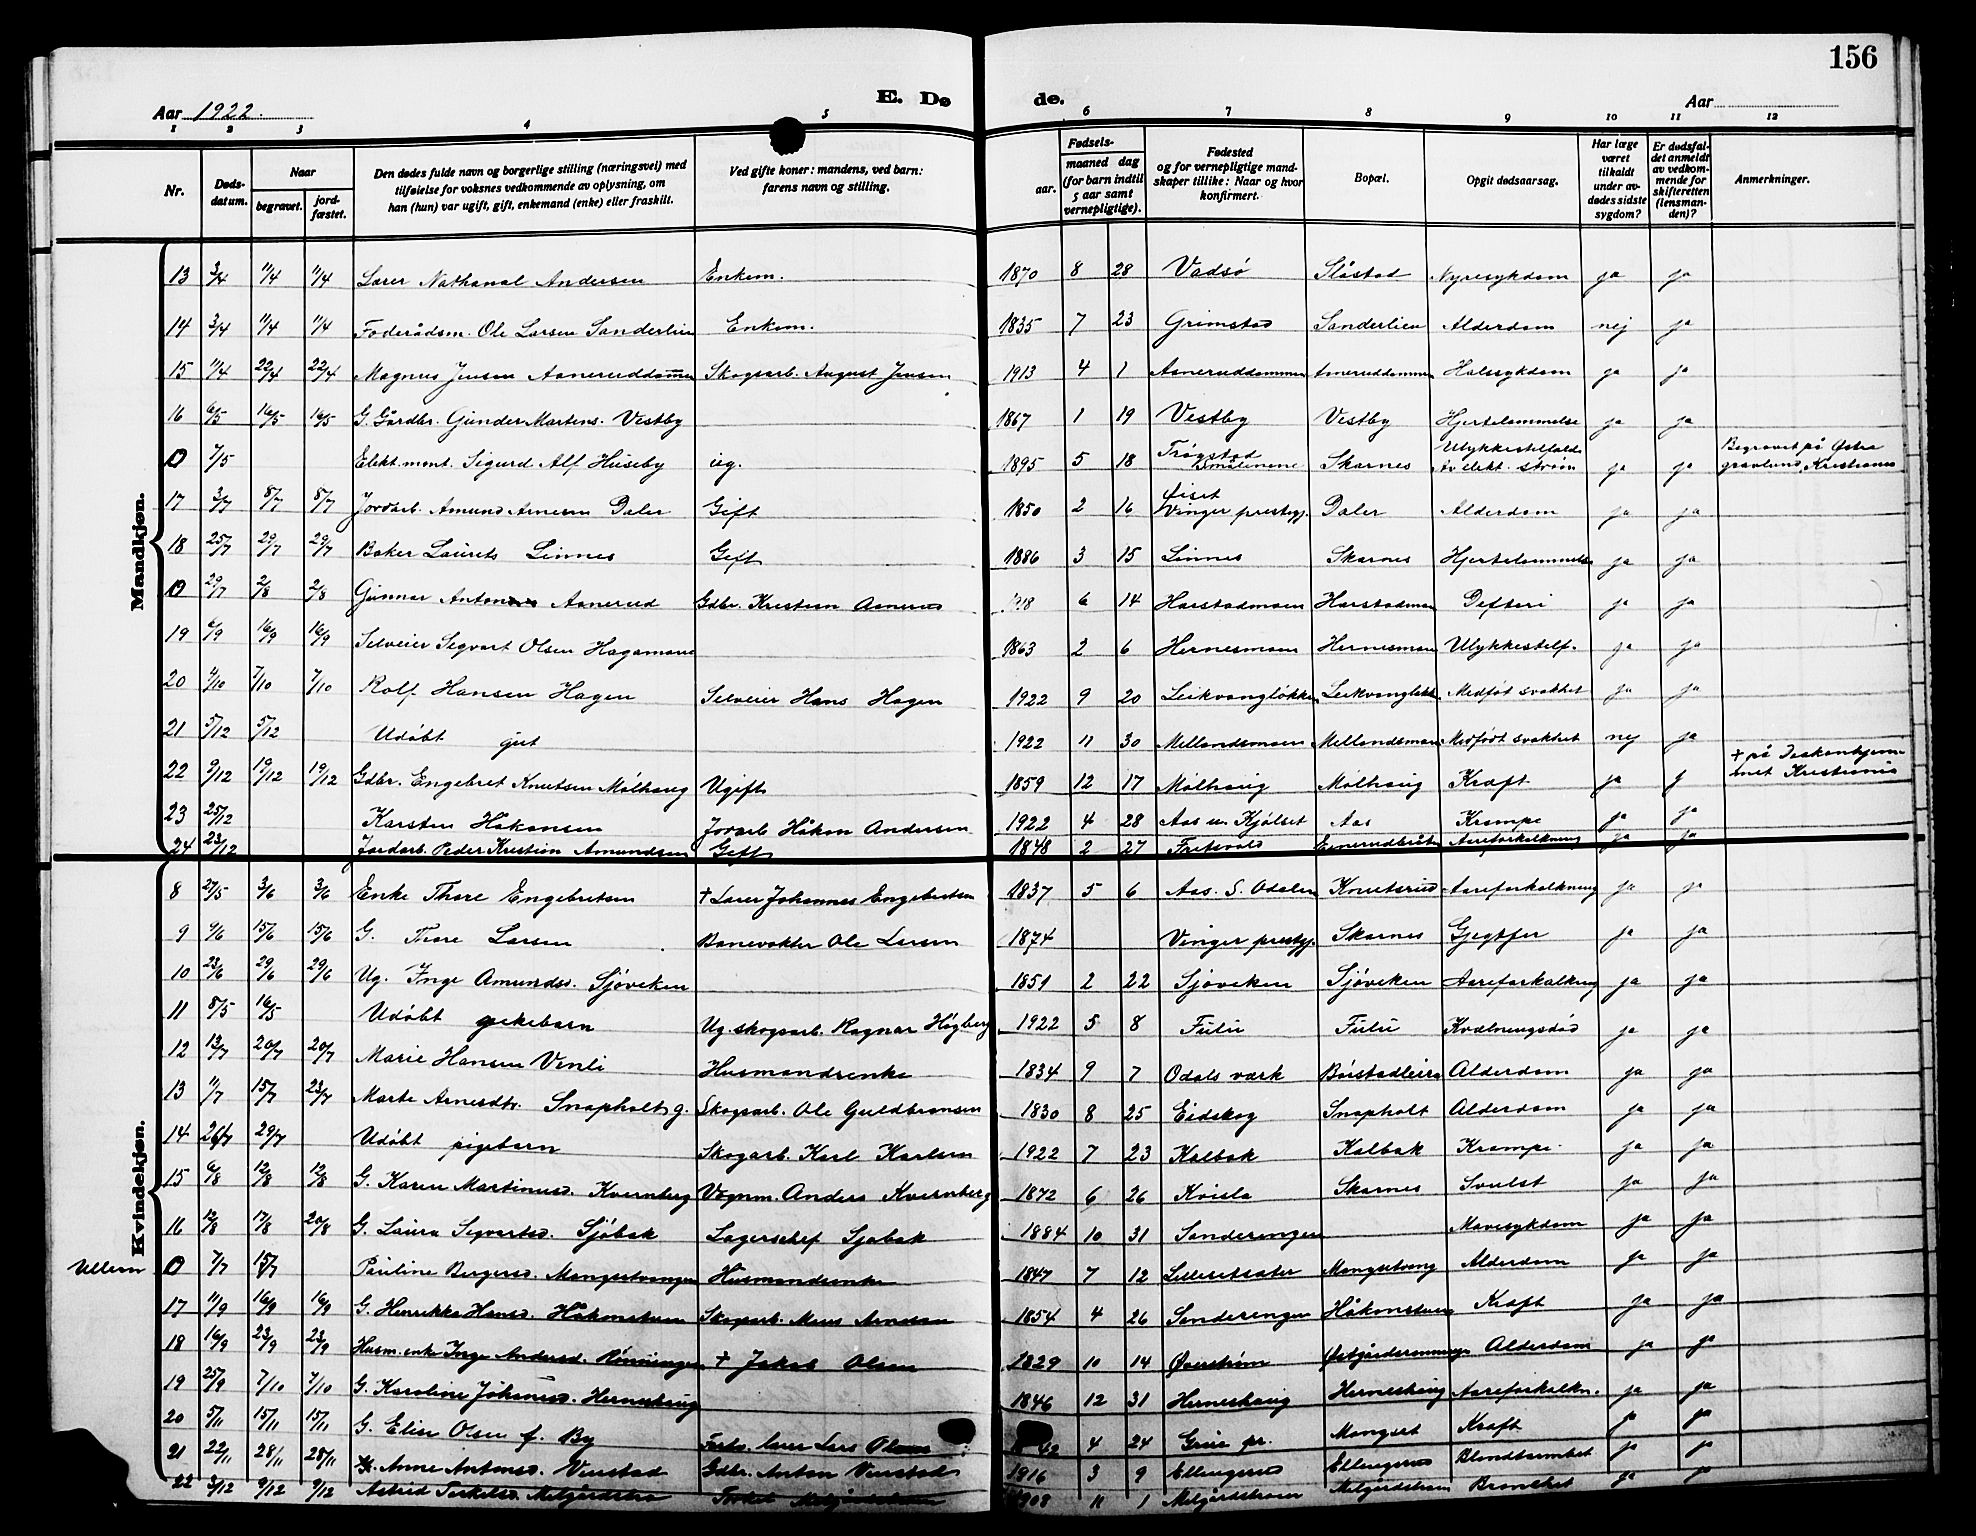 156
Aar 1922.
E. Dø de.
Aar
1 2 3 4 5 6 7 8 9 10 11 12
Nr.
Døds-datum.
Naar
begravet.
jord-fæstet.
Den dødes fulde navn og borgerlige stilling (næringsvei) med
tilføielse for voksnes vedkommende av oplysning, om
han (hun) var ugift, gift, enkemand (enke) eller fraskilt.
Ved gifte koner: mandens, ved barn:
farens navn og stilling.
Fødsels-
aar.
maaned dag
(for barn indtil
5 aar samt
vernepligtige).
Fødested
og for vernepligtige mand-
skaper tillike: Naar og hvor
konfirmert.
Bopæl.
Opgit dødsaarsag.
Har læge
været
tilkaldt
under av-
dødes sidste
sygdom?
Er dødsfal-
det anmeldt
av vedkom-
mende for
skifteretten
(lensman-
den)?
Anmerkninger.
Mandkjøn.
13 3/4 11/4 11/4 Lærer Nathanal Andersen Enkem. 1870 8 28 Vadsø Slåstad Nyresykdom ja ja
14 3/4 11/4 11/4 Føderådsm. Ole Larsen Sanderlien Enkem. 1835 7 23 Grimstad Sanderlien Alderdom nej ja
15 11/4 22/4 22/4 Magnus Jensen Aaneruddammen Skogsarb. August Jensen 1913 4 1 Aaneruddammen Halssykdom ja ja
16 6/5 16/5 16/5 G. Gårdbr. Gunder Martens. Vestby 1867 1 19 Vestby Vestby Hjertelammelse ja ja
0 7/5 Elekt. mont. Sigurd Alf Huseby ug. 1895 5 18 Trøgstad Smålenene Skarnes Ulykkestilfælde Av elekt. strøm ja ja Begravet på Østre gravlund, Kristiania
17 3/7 8/7 8/7 Jordarb. Amund Arnesen Daler Gift 1850 2 16 Vinger prestegj. Daler Alderdom ja ja
18 25/7 29/7 29/7 Baker Laurits Linnes Gift 1886 3 15 Linnes Skarnes Hjertelammelse ja ja
0 29/7 2/8 2/8 Gunnar Anton Aanerud Gdbr. Kristian Aanerud 1918 6 14 Harstadmoen Harstadmoen Difteri ja ja
19 6/9 16/9 16/9 Selveier Sigvart Olsen Hagamoen 1863 2 6 Hernesmoen Hernesmoen Ulykkestilf. ja ja
20 1/10 7/10 7/10 Rolf Hansen Hagen Selveier Hans Hagen 1922 9 20 Leikvangløkken Leikvangløkk. Medføt svakhet ja ja
21 5/12 5/12 Udøbt gut 1922 11 30 Mellandsmoen Mellandsmoen Medfødt svakhet nej ja
22 9/12 19/12 19/12 Gdbr. Engebret Knutsen Mølhaug Ugift 1859 12 17 Mølhaug Mølhaug Kræft ja j + på Diakonhjemmet Kristiania
23 25/12 Karsten Håkonsen Jordarb Håkon Andersen 1922 4 28 Aas u. Kjølset Aas Krampe ja ja
24 23/12 Jordarb. Peder Kristian Amundsen Gift 1848 2 27 Aareforkalkning ja ja
Kvindekjøn.
8 27/5 3/6 3/6 Enke Thore Engebretsen + Lærer Johannes Engebretsen 1837 5 6 Aas. S. Odalen Knutsrud Aareforkalkning ja ja
9 9/6 15/6 15/6 G. Thore Larsen Banevokter Ole Larsen 1874 Vinger prestgj. Skarnes ja ja
10 23/6 29/6 29/6 Ug. Inge Amundsd. Sjøviken 1851 2 22 Sjøviken Sjøviken Aareforkalkning ja ja
11 8/5 16/5 Udøbt pikebarn Ug. skogsarb. Ragnar Høgberg 1922 5 8 Fulu Fulu Kvælningsdød ja ja
12 13/7 20/7 20/7 Marie Hansen Venli Husmandsenke 1834 9 7 Odals værk Alderdom ja ja
13 11/7 15/7 23/7 Marte Arnesdtr. Snapholt g. Skogsarb. Ole Guldbransen 1830 8 25 Eidskog Snapholt Alderdom ja ja
14 26/7 29/7 Udøbt pigebarn Skogarb. Karl Karlsen 1922 7 23 Kalbak Kalbak Krampe ja ja
15 6/8 12/8 12/8 G. Karen Martinusd. Kvernberg Vognm. Anders Kvernberg 1872 6 26 Kvisla Skarnes Svulst ja ja
16 12/8 17/8 20/8 G. Laura Sigvartsd. Sjøbak Lagerschef Sjøbak 1884 10 31 Sanderengen Mavesykdom ja ja
Ullern 0 7/7 15/7 Pauline Bergersd. Mangestvangen Husmandsenke 1847 7 12 Lillesetsæter Alderdom ja ja
17 11/9 16/9 16/9 G. Henrikka Hansd. Håkonstuen Skogarb. Arnesen 1854 4 26 Sanderengen Håkonstuen Kræft ja ja
18 16/9 23/9 23/9 Husm. enke Inge Andersd. Rønningen + Jakob Olsen 1829 10 14 Øverstrøm Alderdom ja ja
19 25/9 7/10 7/10 G. Karoline Johansd. Herneshaug 1846 12 31 Herneshaug Herneshaug Aareforkalkn. ja ja
20 5/11 15/11 15/11 G. Elise Olsen f. By Lars Olsen 42 4 24 Grue pr. Mangset Kræft ja ja
21 22/11 28/11 28/11 Anne Antonsd. Venstad Gdbr. Anton Venstad 1916 3 9 Ellingsrud Ellingsrud Blindtarmbet. ja ja
22 3/12 9/12 9/12 Astrid Torkelsd. 1908 11 1 ja ja